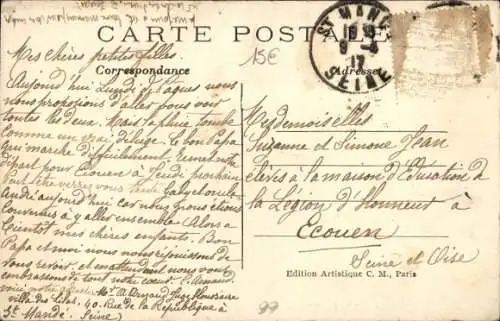 CARTE POSTALE
Correspondance
Adresse
15€
ST MANDÉ
9 - 4
17
SEINE
Mes chères petites filles.
Aujourd'hui Lundi de Pâques nous
nous proposions d'aller vous voir
toutes les deux. Mais la pluie tombe
comme un vrai déluge. Le bon Papa
qui marche difficilement remet notre
départ pour Ecouen à Jeudi prochain
Peut être verrez vous
aujourd'hui car nous étions
convenus d'y aller ensemble. Alors à
bientôt mes chères enfants. Bon
Papa et moi nous nous réjouissons de
vous revoir. et en attendant nous vous
embrassons de tout notre coeur.
voici notre adresse Mr A Arnaud
ville des Lilas. 40 Rue de la République à
St Mandé. Seine
Mesdemoiselles
Suzanne et Simone Jean
élèves à la maison d'Education de
la Légion d'Honneur à
Ecouen
Seine et Oise
Edition Artistique C. M., Paris
99